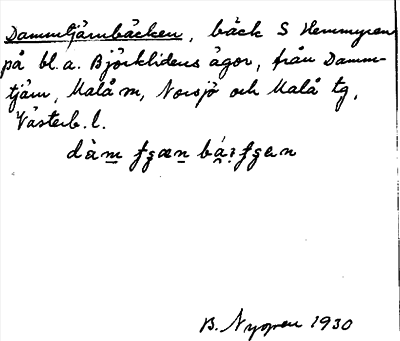 Dammtjärnbäcken, bäck S Hemmyren
på bl.a. Björklidens ägor, från Damm-
tjärn, Malå sn, Norsjö och Malå tg,
Västerb. l.
B. Nygren 1930